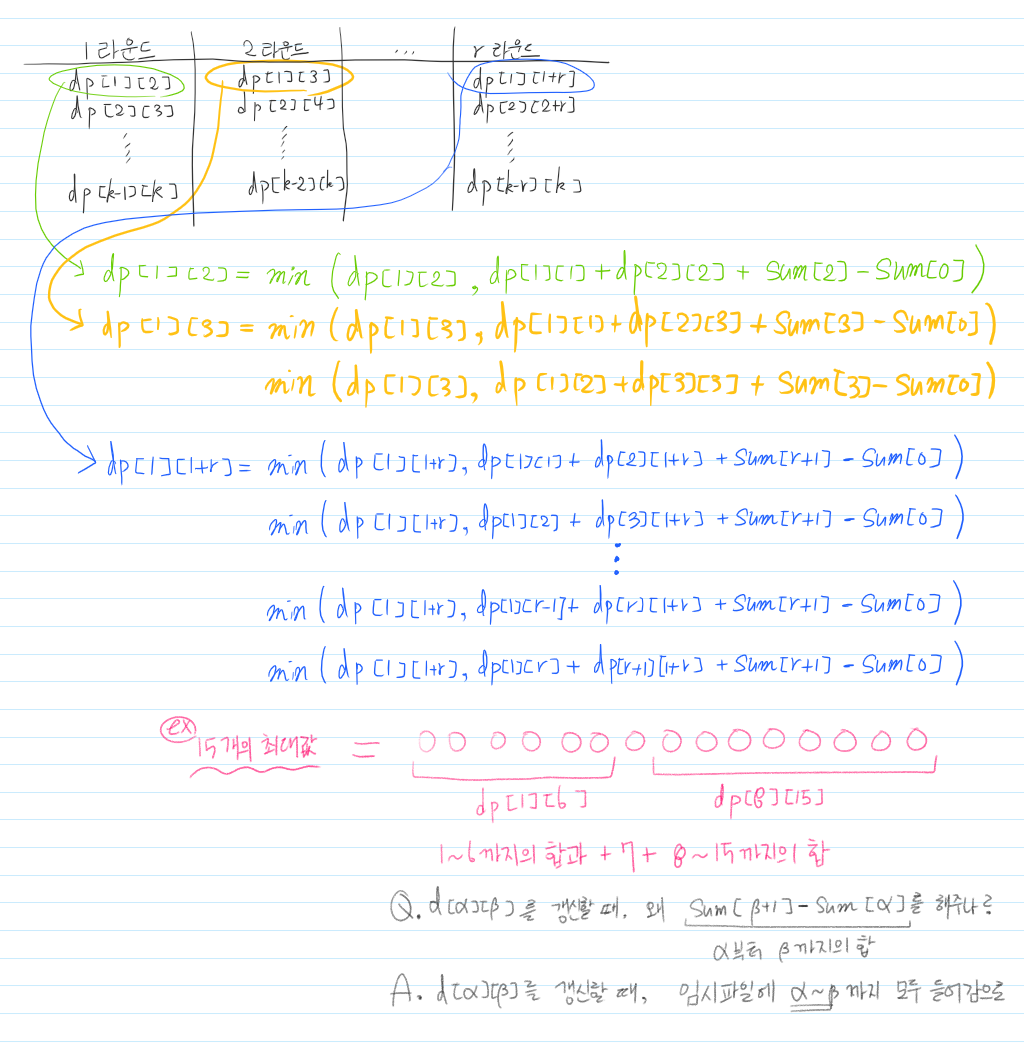 1 라운드 2 라운드 ... r 라운드
dp[1][2] dp[1][3] dp[1][1+r]
dp[2][3] dp[2][4] dp[2][2+r]
dp[k-1][k] dp[k-2][k] dp[k-r][k]
dp[1][2] = min (dp[1][2], dp[1][1]+dp[2][2] + Sum[2]-Sum[0])
dp[1][3] = min (dp[1][3], dp[1][1]+dp[2][3]+Sum[3]-Sum[0])
min (dp[1][3], dp[1][2]+dp[3][3] + Sum[3]-Sum[0])
dp[1][1+r] = min (dp[1][1+r], dp[1][1] + dp[2][1+r] + Sum[r+1] - Sum[0])
min (dp[1][1+r], dp[1][2] + dp[3][1+r] + Sum[r+1] - Sum[0])
min (dp[1][1+r], dp[1][r-1]+ dp[r][1+r] + Sum[r+1] - Sum[0])
min (dp[1][1+r], dp[1][r] + dp[r+1][1+r] + Sum[r+1] - Sum[0])
ex
15개의 최대값 = ○ ○ ○ ○ ○ ○ ○ ○ ○ ○ ○ ○ ○ ○ ○
dp[1][6] dp[8][15]
1~6까지의 합과 + 7 + 8~15까지의 합
Q. d[α][β]를 갱신할 때, 왜 Sum[β+1]-Sum[α]를 해주나?
α부터 β까지의 합
A. d[α][β]를 갱신할 때, 임시파일에 α~β까지 모두 들어감으로